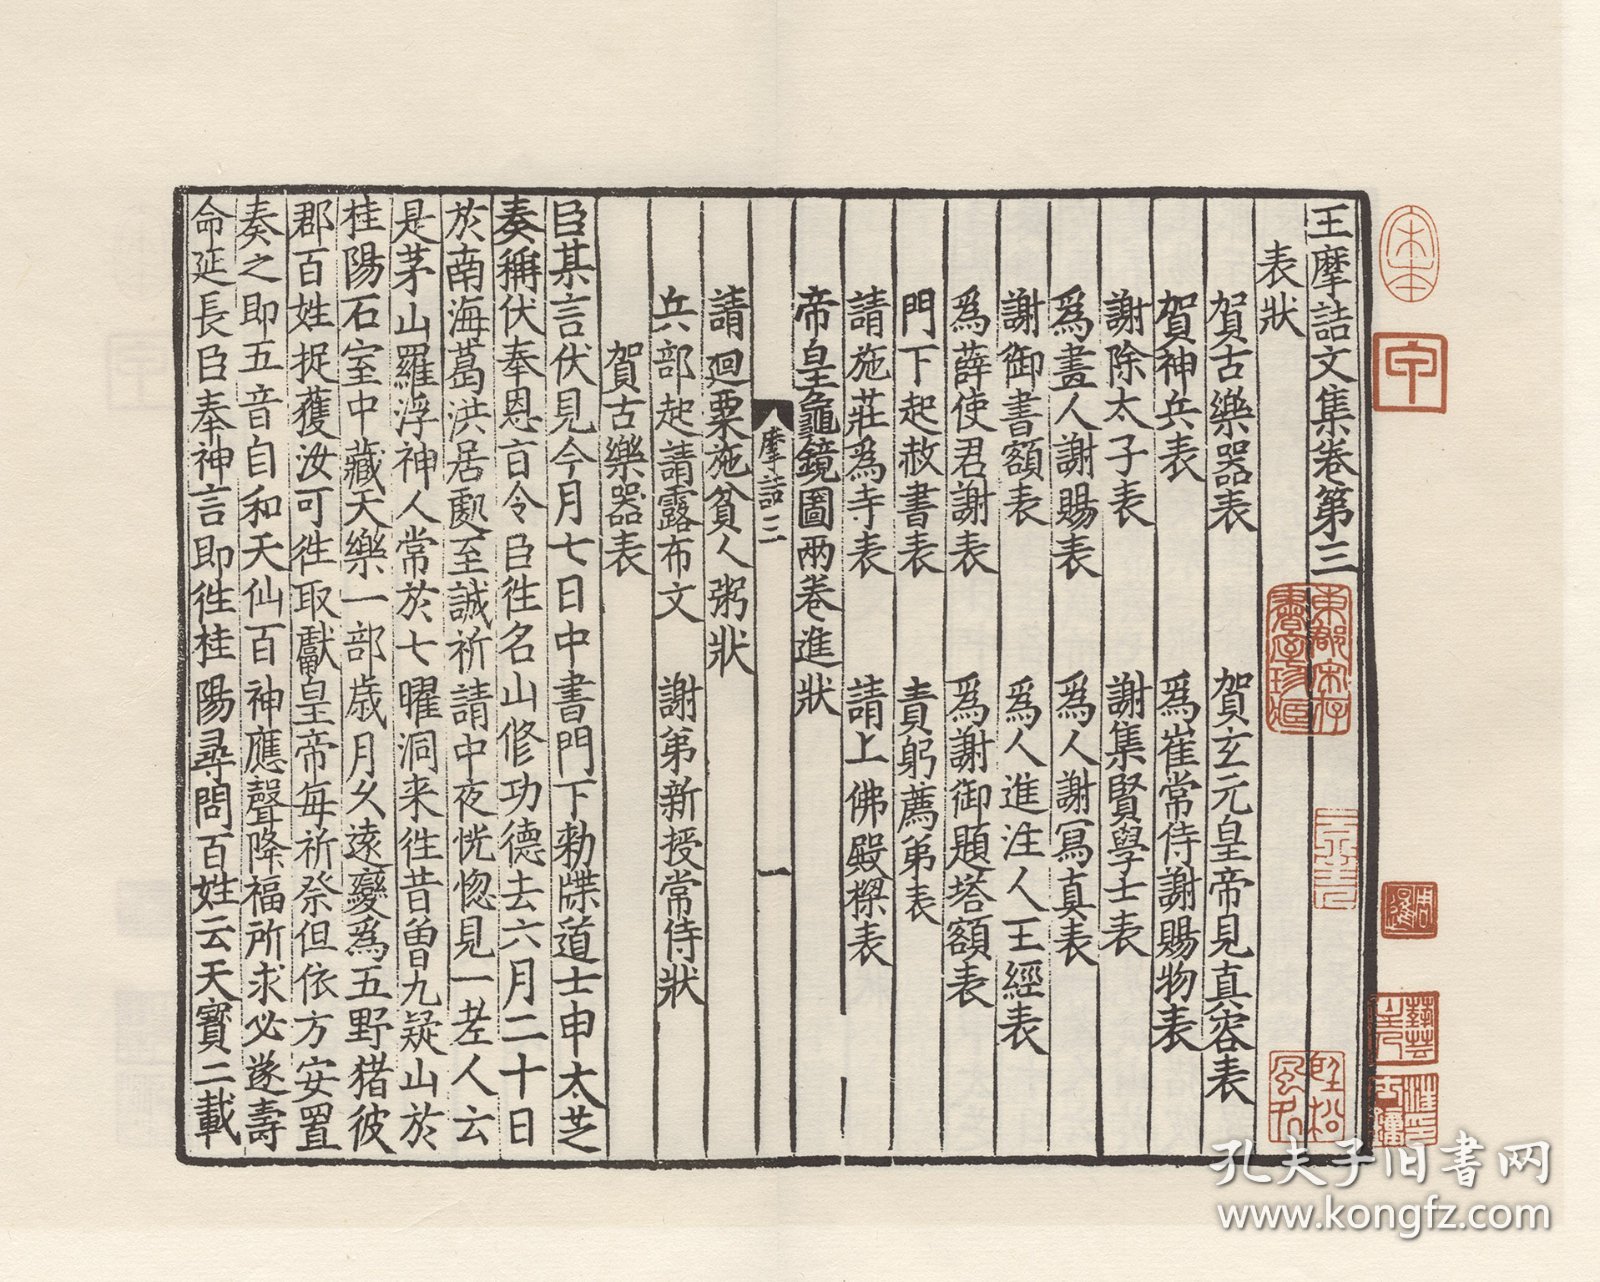 王摩詰文集卷第三
表狀
賀古樂器表　賀玄元皇帝見真容表
賀神兵表　爲崔常侍謝賜物表
謝除太子表　謝集賢學士表
爲畫人謝賜表　爲人謝冩真表
謝御書額表　爲人進注人王經表
爲薛使君謝表　爲謝御題塔額表
門下起赦書表　責躬薦弟表
請施莊爲寺表　請上佛殿樑表
帝皇龜鏡圖兩卷進狀
摩詰三
一
請迴粟施貧人粥狀
兵部起請露布文　謝弟新授常侍狀
賀古樂器表
臣某言伏見今月七日中書門下勑牒道士申太芝
奏稱伏奉恩旨令臣徃名山修功德去六月二十日
於南海葛洪居處至誠祈請中夜恍惚見一老人云
是茅山羅浮神人常於七曜洞来徃昔曽九疑山於
桂陽石室中藏天樂一部歳月久遠變爲五野猪彼
郡百姓捉獲汝可徃取獻皇帝每祈祭但依方安置
奏之即五音自和天仙百神應聲降福所求必遂壽
命延長臣奉神言即徃桂陽尋問百姓云天寳二載
孔夫子旧書网
www.kongfz.com